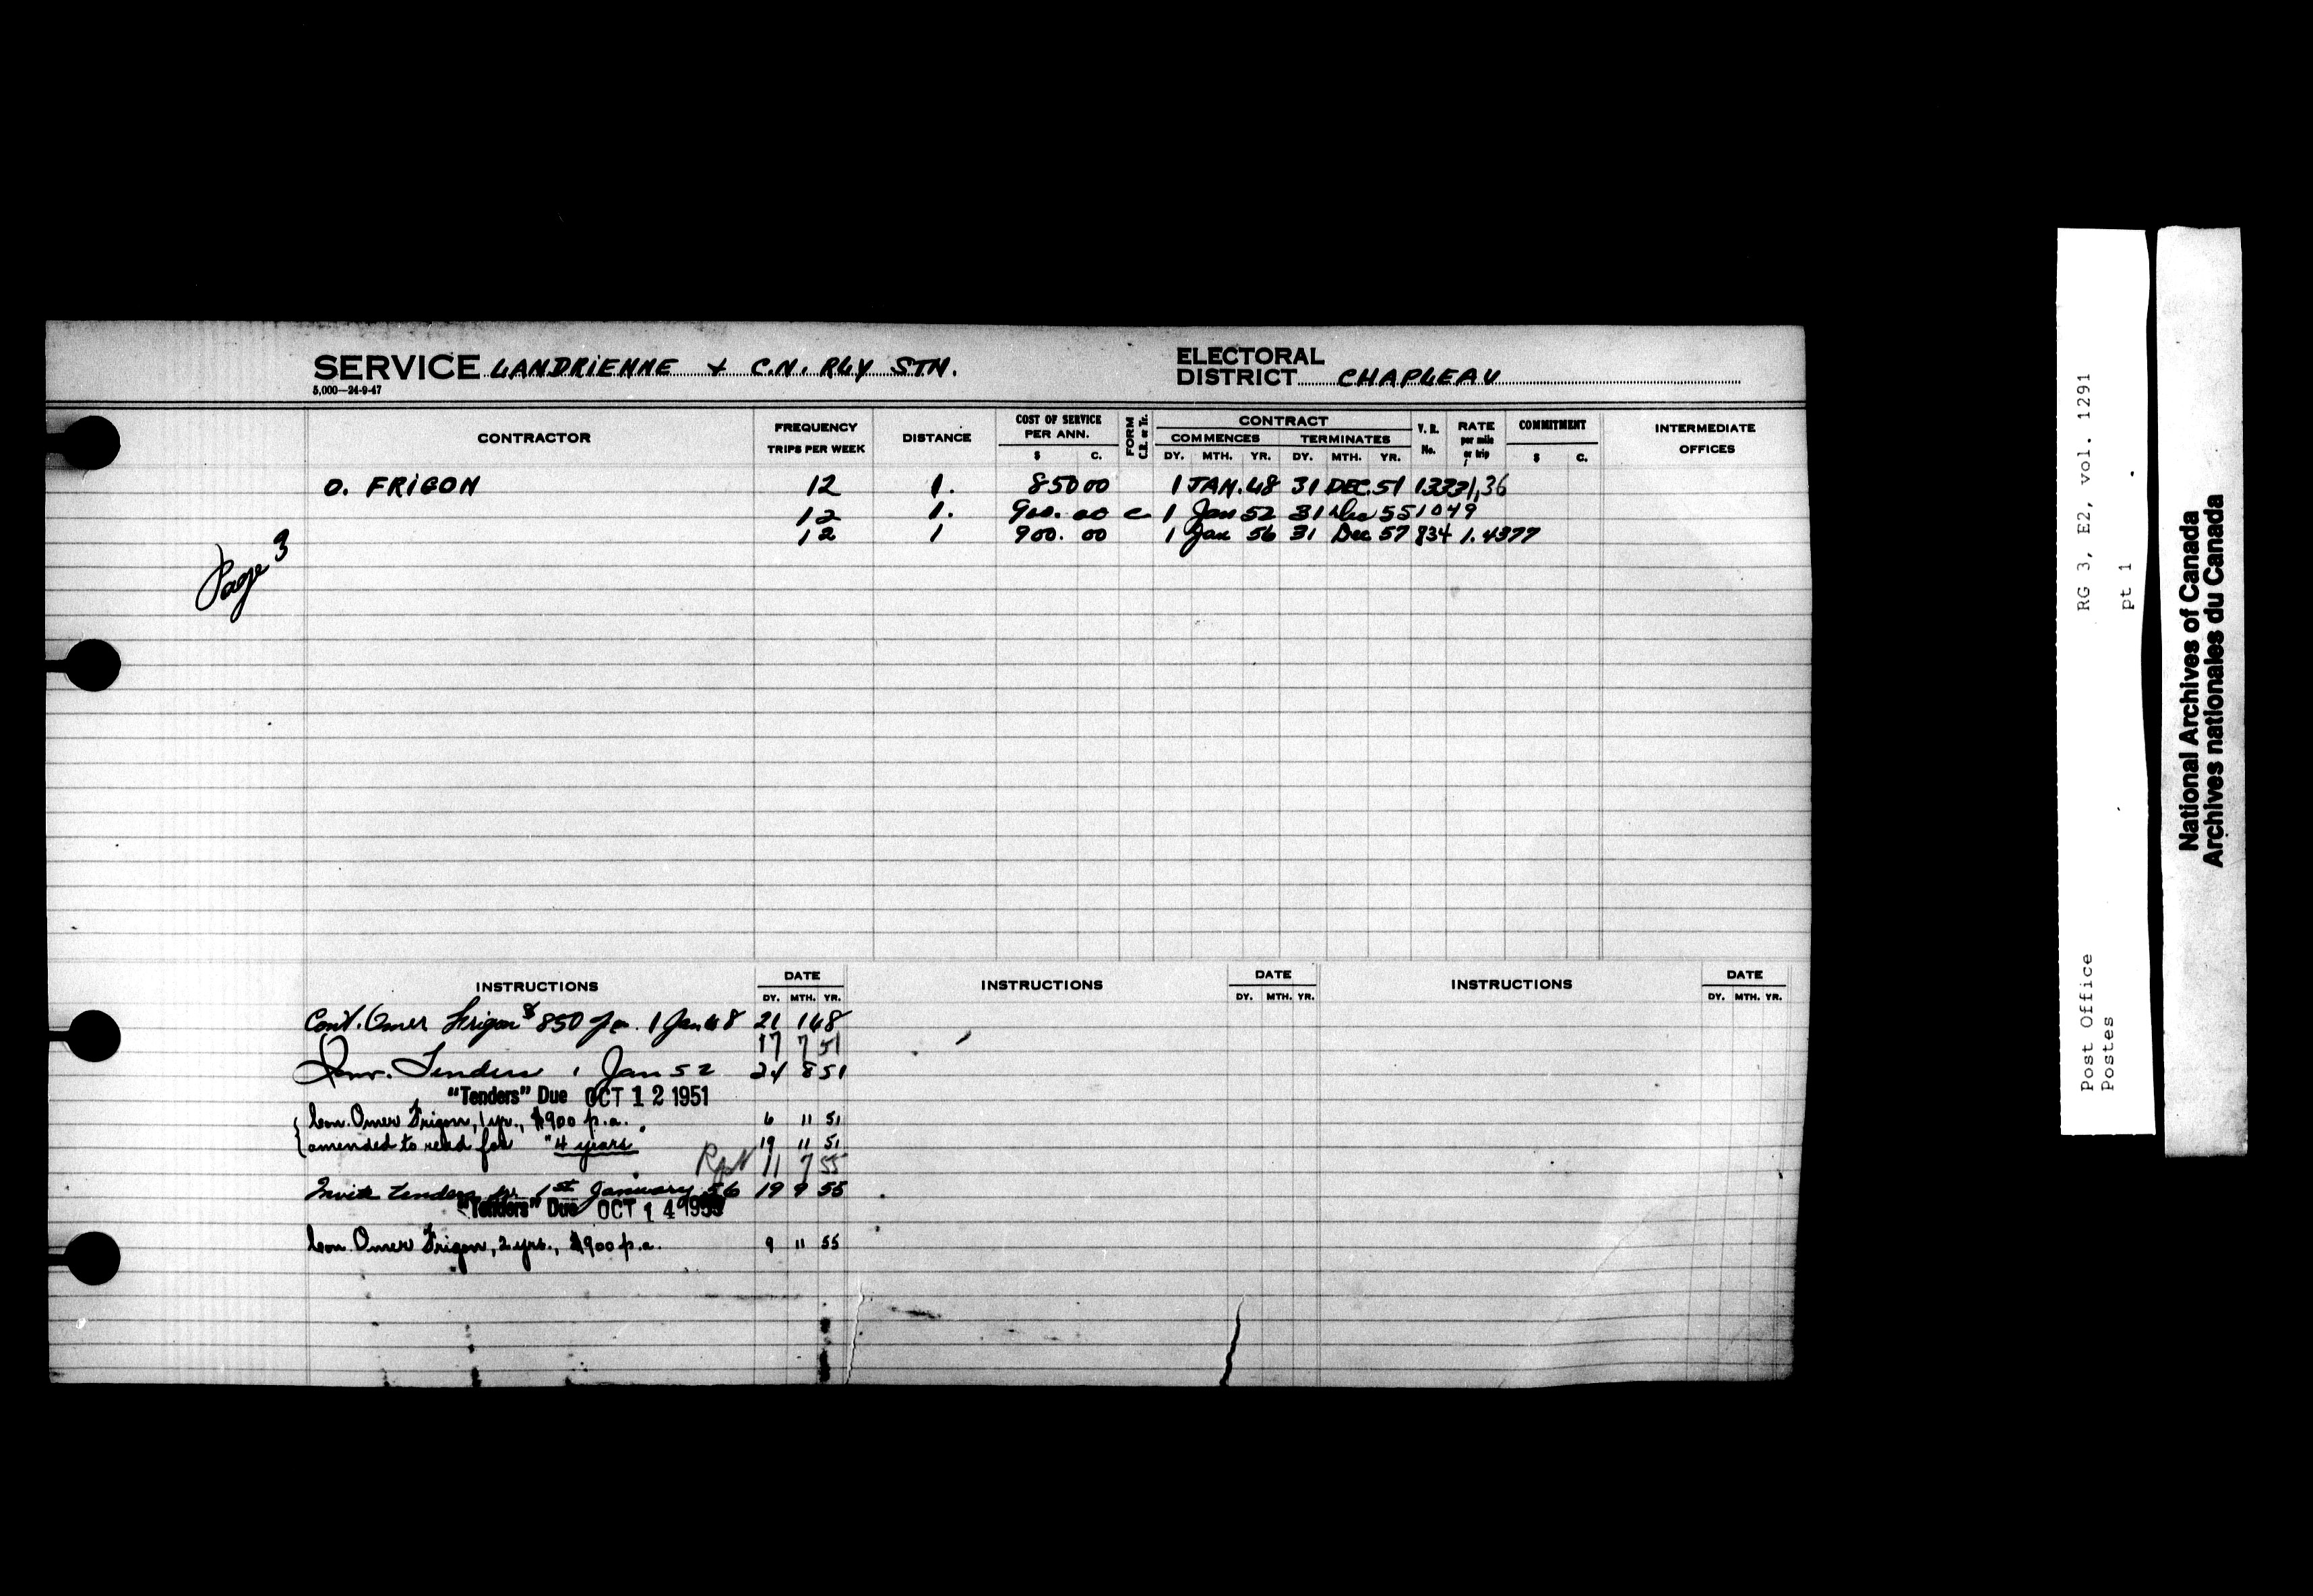 SERVICE LANDRIENNE & C.N. RLY STN.
5,000—24-9-47
ELECTORAL DISTRICT CHAPLEAU
CONTRACTOR FREQUENCY TRIPS PER WEEK DISTANCE COST OF SERVICE PER ANN. $ C. FORM C.R. or Tr. CONTRACT COMMENCES DY. MTH. YR. TERMINATES DY. MTH. YR. V. R. No. RATE per mile or trip COMMITMENT $ C. INTERMEDIATE OFFICES
O. FRIGON 12 1. 850 00 1 JAN. 48 31 DEC. 51 1333 1,36
12 1. 900. 00 c 1 Jan 52 31 Dec 55 1049
12 1 900. 00 1 Jan 56 31 Dec 57 834 1.4377
Page 3
INSTRUCTIONS DATE DY. MTH. YR. INSTRUCTIONS DATE DY. MTH. YR. INSTRUCTIONS DATE DY. MTH. YR.
Cont. Omer Frigon $850 p.a. 1 Jan 48 21 1 48
17 7 51
Tenders 1 Jan 52 24 8 51
"Tenders" Due OCT 12 1951
Con. Omer Frigon, 1 yr., $900 p.a. 6 11 51
amended to read for "4 years" 19 11 51
11 7 55
Invite tenders for 1st January 56 19 9 55
"Tenders" Due OCT 14 1955
Con. Omer Frigon, 2 yrs., $900 p.a. 9 11 55
Post Office RG 3, E2, vol. 1291
Postes pt 1
National Archives of Canada
Archives nationales du Canada